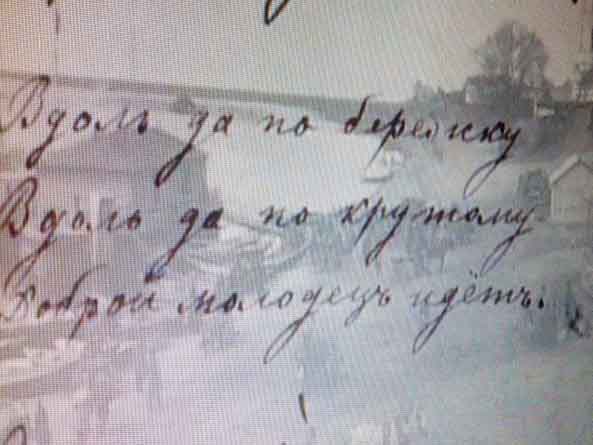 Вдоль да по бережку
Вдоль да по крутому
Доброй молодецъ идётъ.